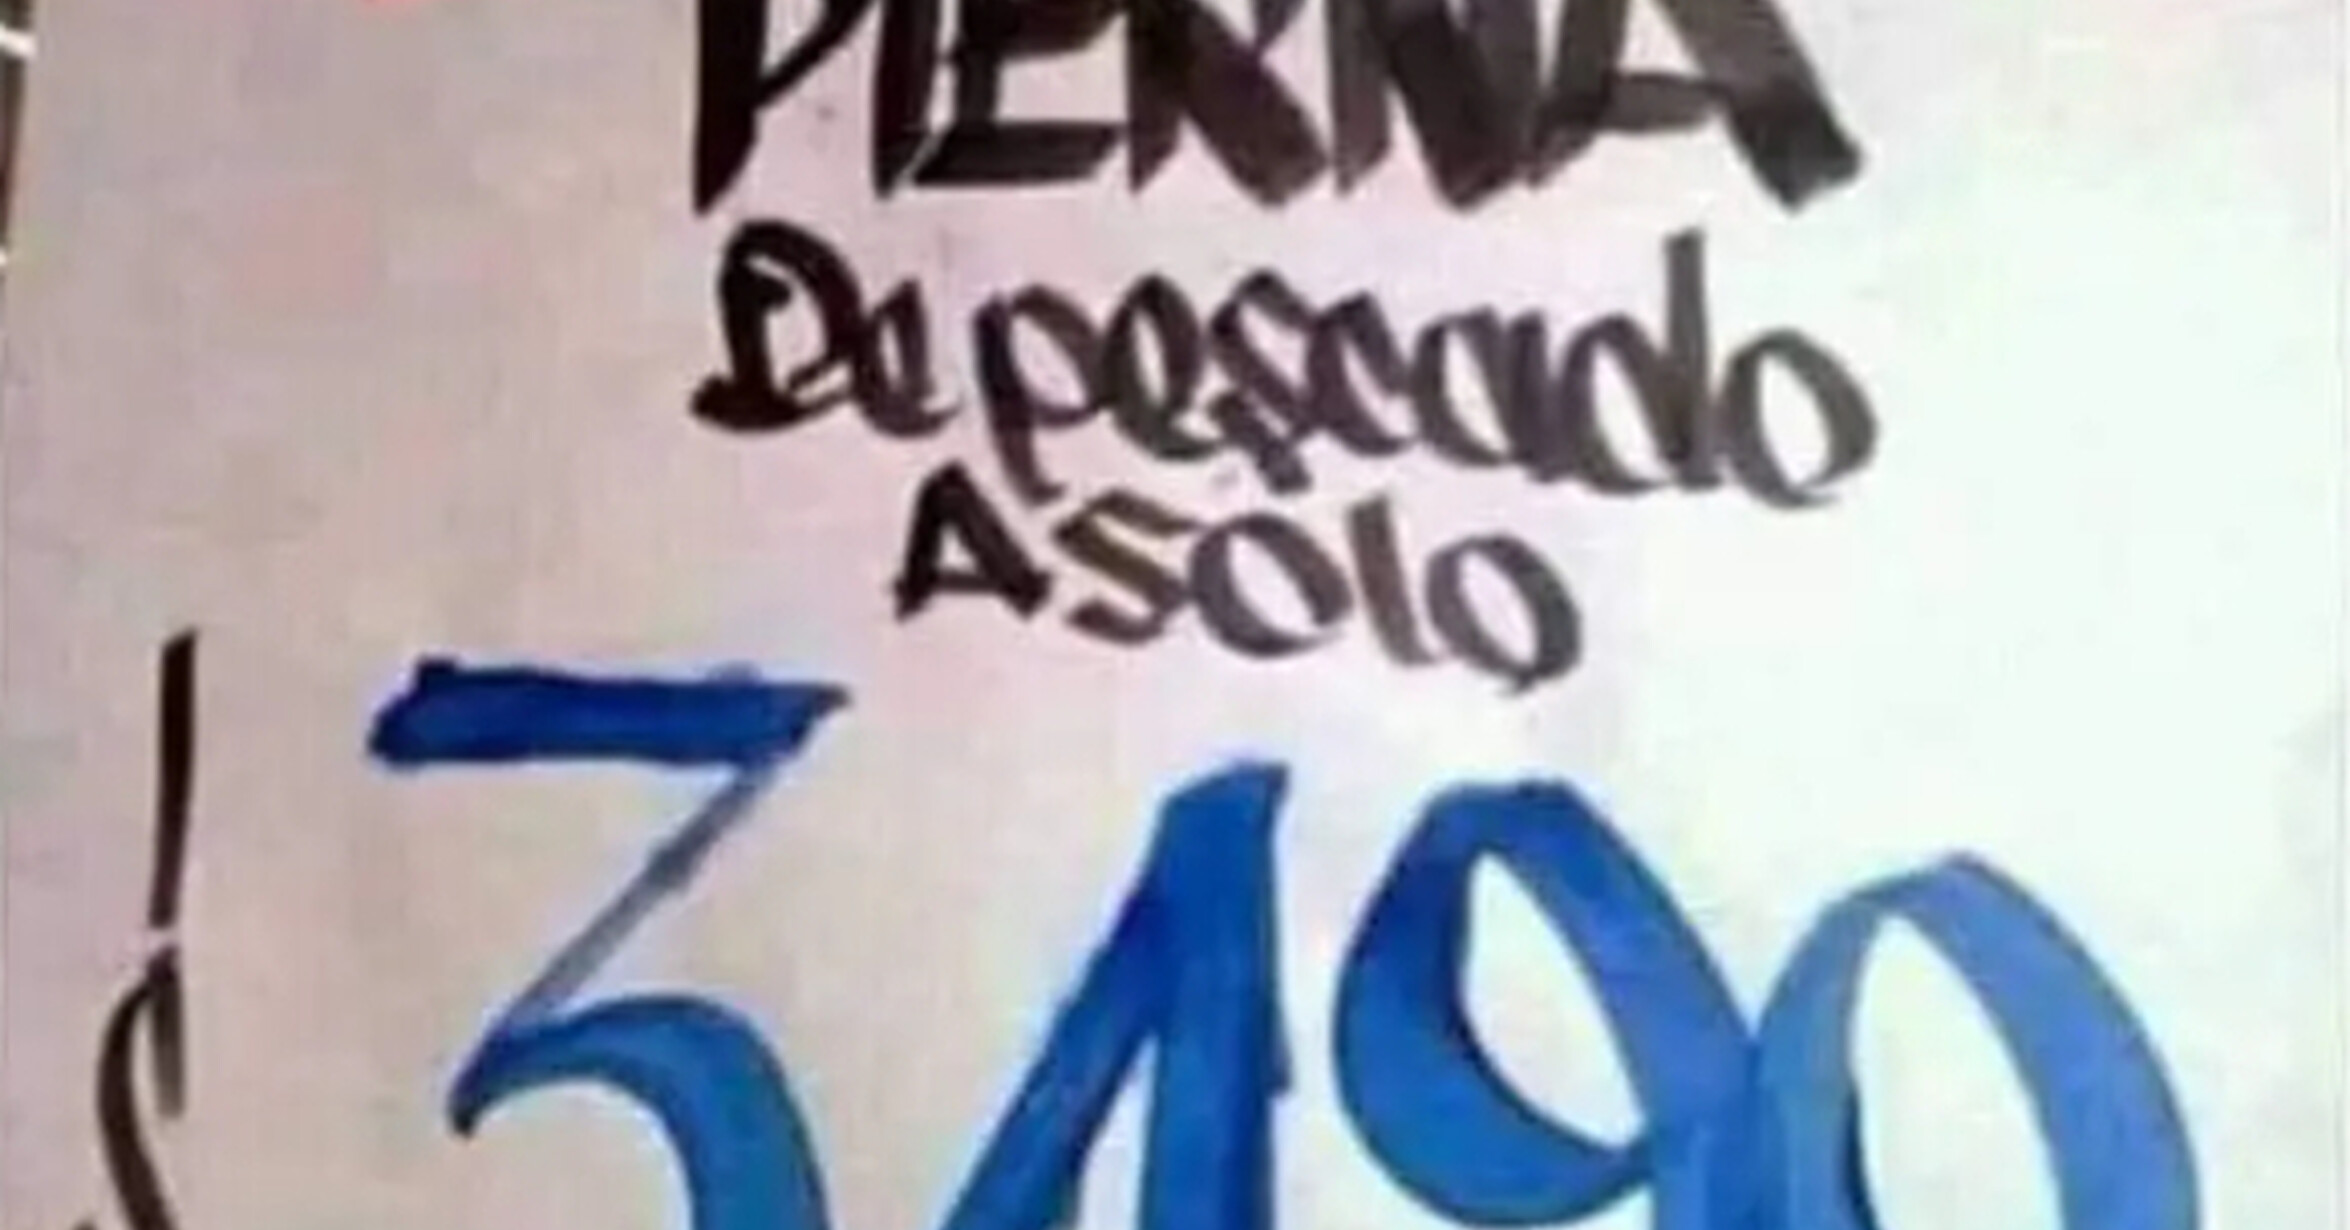 PIERNA
De pescado
A SOlo
$ 3490